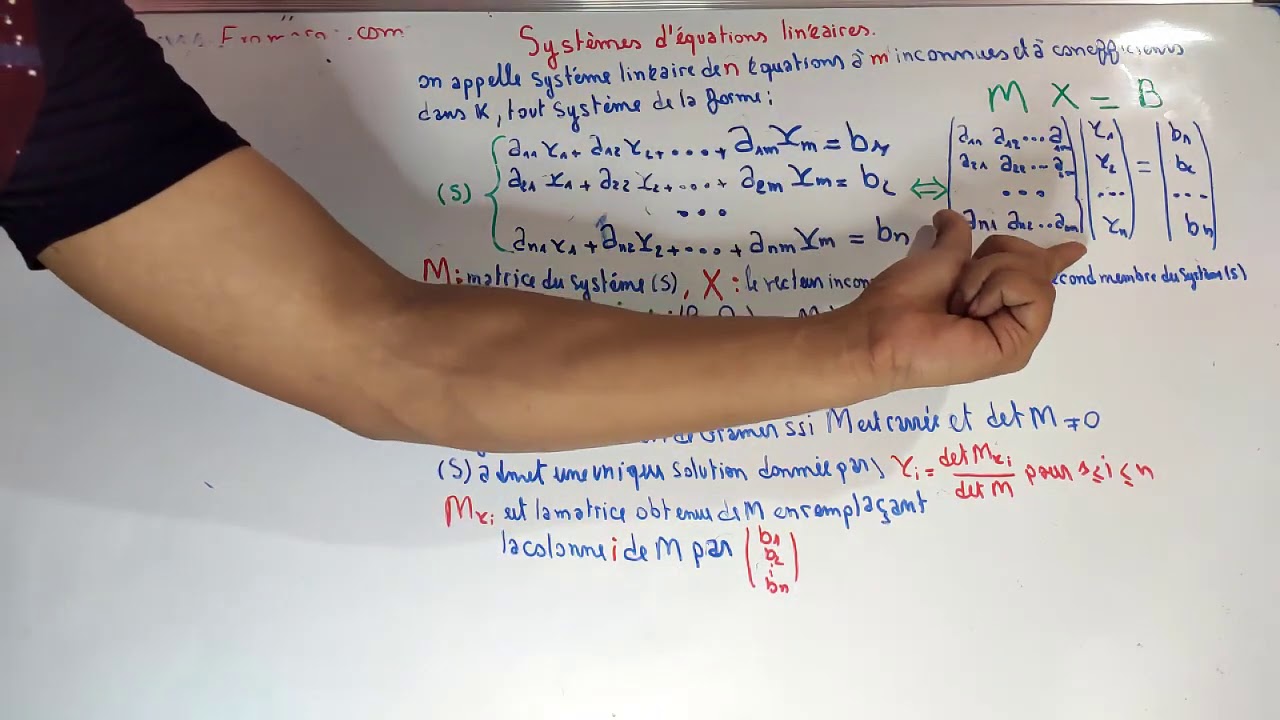 .com
Systèmes d'équations linéaires.
on appelle système linéaire de n équations à m inconnues et à conefficients
dans K, tout système de la forme :
M X = B
(S) { a11 x1 + a12 x2 + ... + a1m xm = b1
a21 x1 + a22 x2 + ... + a2m xm = b2
...
an1 x1 + an2 x2 + ... + anm xm = bn
⇔ ( a11 a12 ... a1m ) ( x1 ) = ( b1 )
a21 a22 ... x2 b2
... ... ...
an1 an2 ... anm xn bn
M : matrice du système (S), X : le vecteur incon second membre du système (S)
Cramer ssi M est carrée et det M ≠ 0
(S) admet une unique solution donnée par xi = det Mxi / det M pour 1 ≤ i ≤ n
Mxi est la matrice obtenue de M en remplaçant
la colonne i de M par ( b1
b2
:
bn )